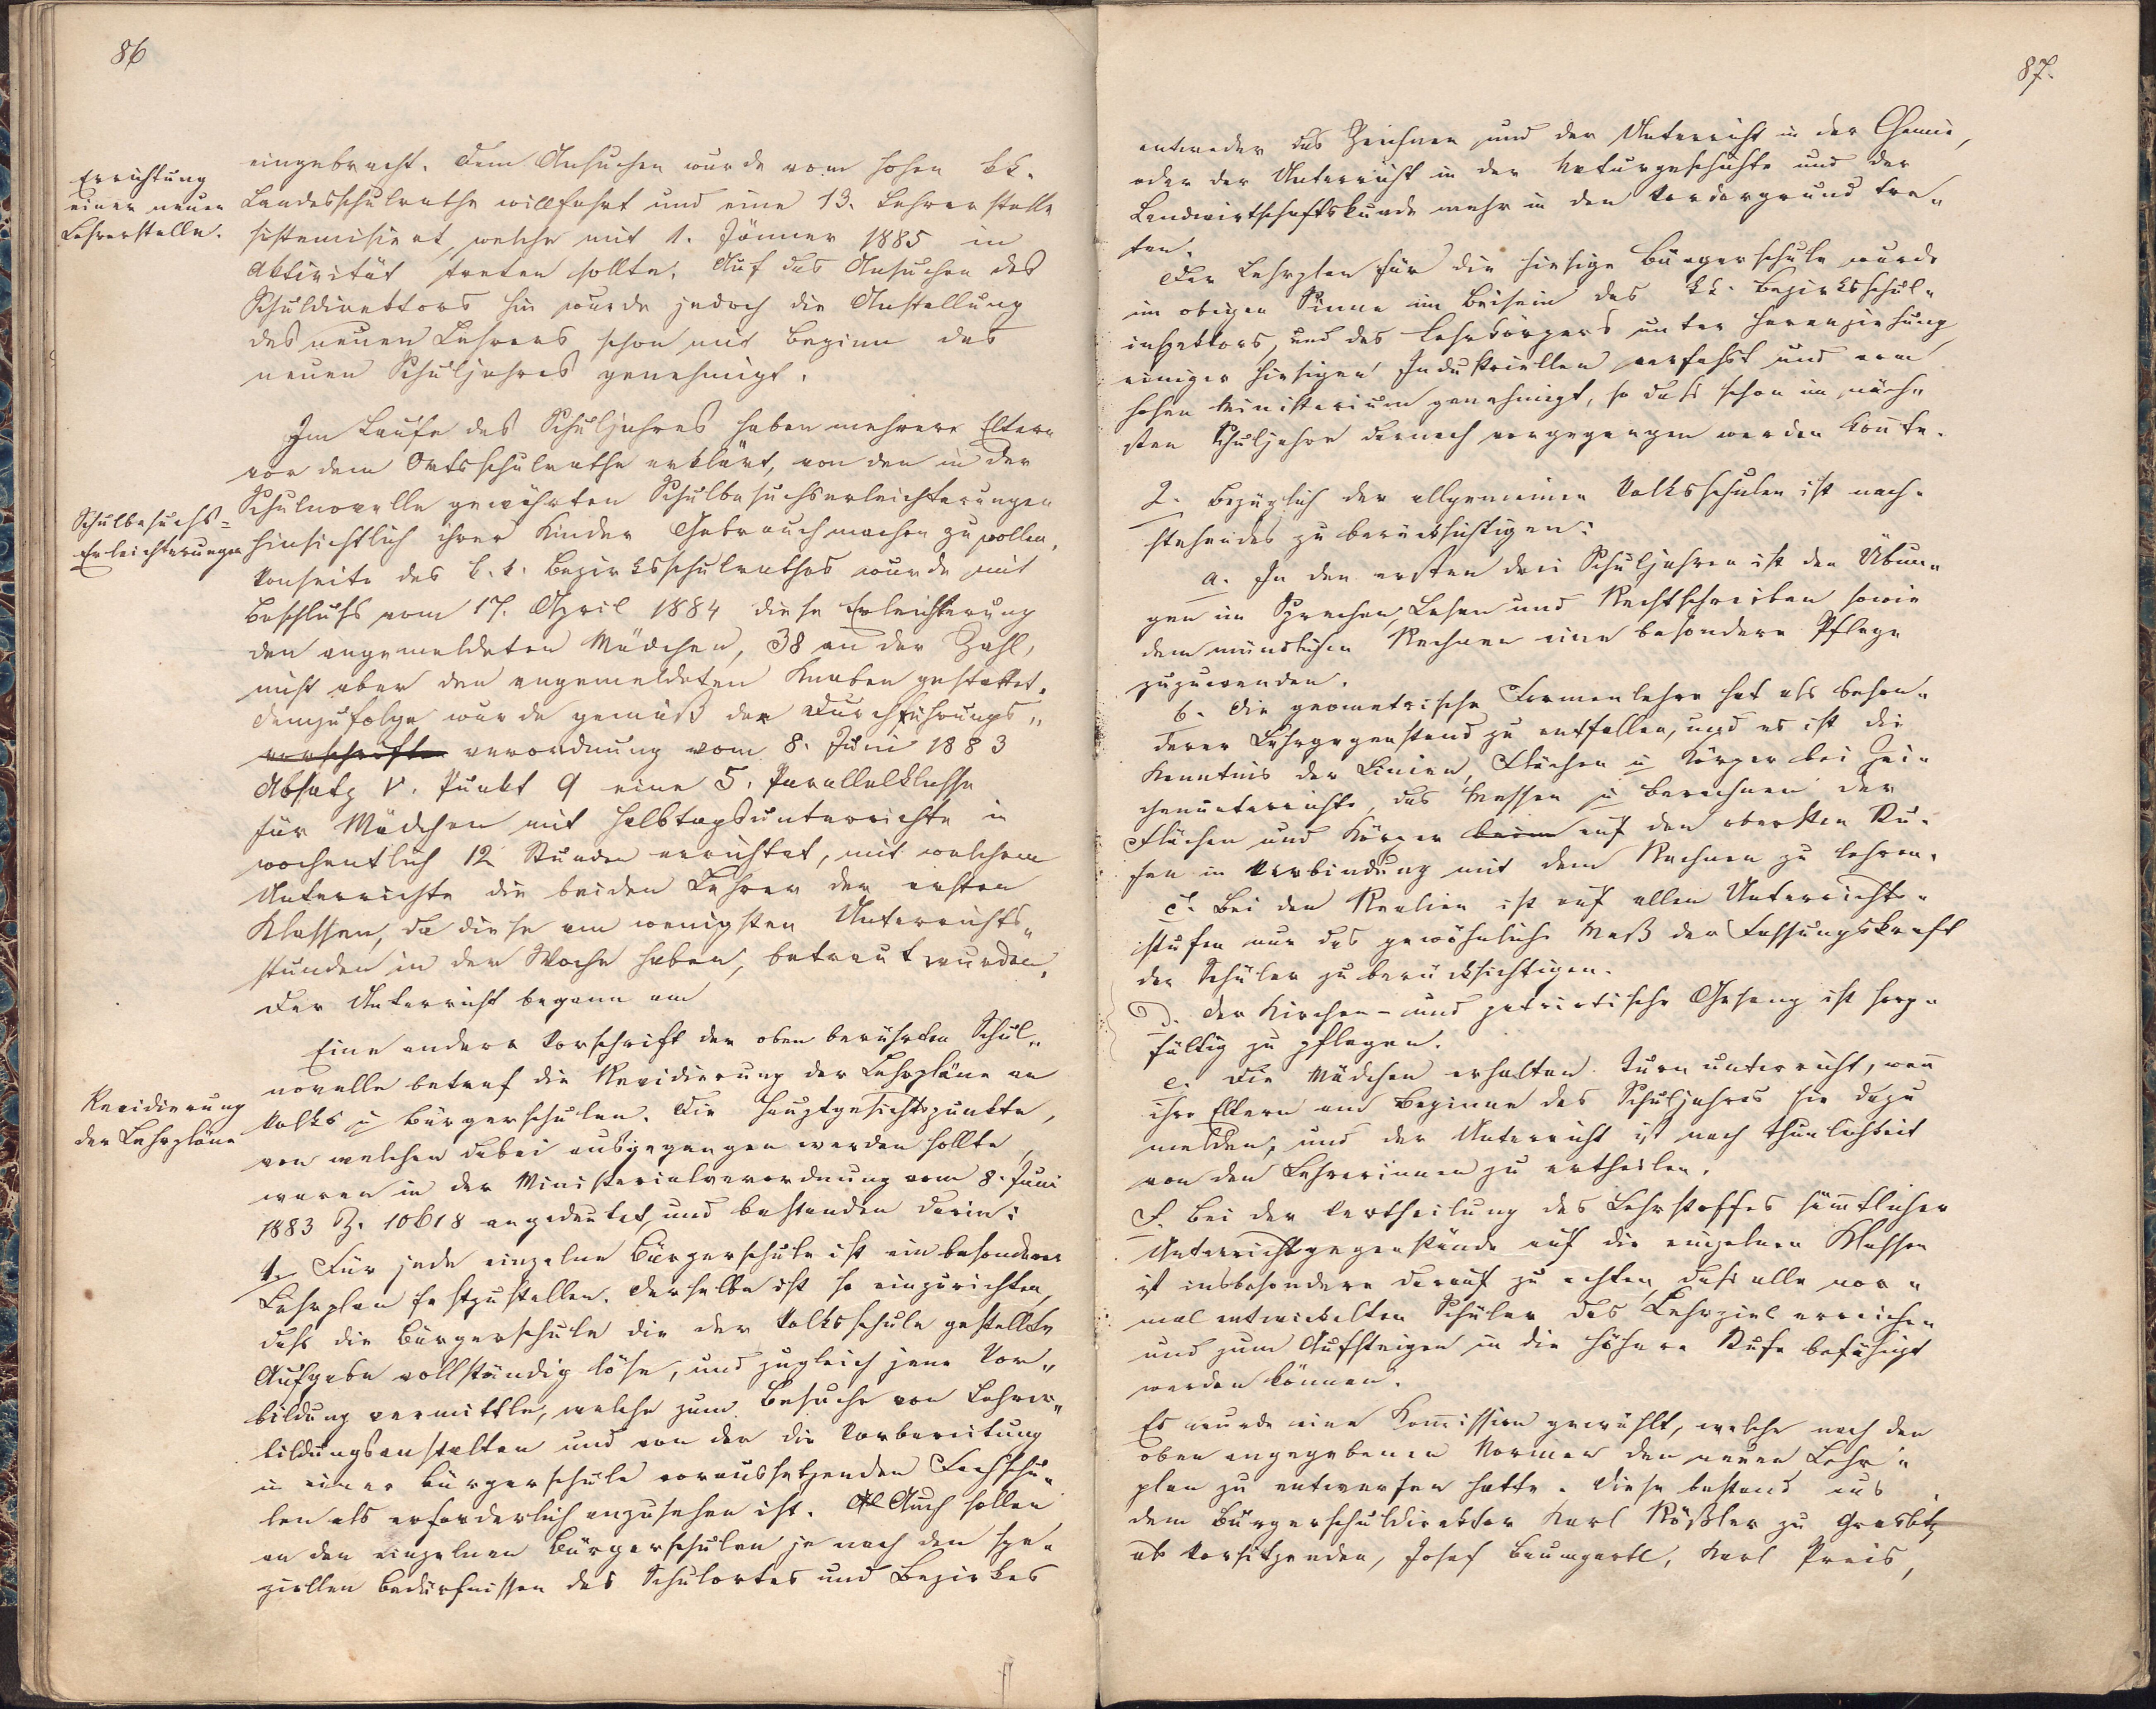 86
Errichtung
einer neuen
Lehrerstelle.
eingebracht. Dem Ansuchen wurde vom hohen kk.
Landesschulrathe willfahrt und eine 13. Lehrerstelle
sistemisirt, welche mit 1. Jänner 1885 in
Aktivität treten sollte. Auf das Ansuchen des
Schuldirektors hin wurde jedoch die Anstellung
des neuen Lehrers schon mit Beginn des
neuen Schuljahres genehmigt.
Im Laufe des Schuljahres haben mehrere Eltern
vor dem Ortsschulrathe erklärt, von den in der
Schulnovelle gewährten Schulbesuchserleichterungen
Schulbesuchs=
Erleichterungen
hinsichtlich ihrer Kinder Gebrauch machen zu wollen.
Vonseite des k. k. Bezirksschulrathes wurde mit
Beschluss vom 17. April 1884 diese Erleichterung
den angemeldeten Mädchen, 38 an der Zahl,
nicht aber den angemeldeten Knaben gestattet.
Demzufolge wurde gemäß der Durchführungs„
vorschrifte verordnung vom 8. Juni 1883
Absatz V. Punkt 9 eine 5. Parallelklasse
für Mädchen mit Halbtagsunterrichte in
wochentlich 12 Stunden errichtet, mit welchem
Unterrichte die beiden Lehrer der ersten
Klassen, da diese am wenigsten Unterrichts„
stunden in der Woche haben, betraut wurden.
Der Unterricht begann am
Eine andere Vorschrift der oben berührten Schul„
novelle betraf die Revidierung der Lehrpläne an
Revidierung
der Lehrpläne
Volks u Bürgerschulen. Die Hauptgesichtspunkte,
von welchen dabei ausgegangen werden sollte,
waren in der Ministerialverordnung vom 8. Juni
1883 Z. 10618 angedeutet, und bestanden darin:
1. Für jede einzelne Bürgerschule ist ein besonderer
Lehrplan festzustellen. Derselbe ist so einzurichten,
dass die Bürgerschule die der Volksschule gestellte
Aufgabe vollständig löse, und zugleich jene Vor„
bildung vermittle, welche zum Besuche von Lehrer„
bildungsanstalten und von der die Vorbereitung
in einer Bürgerschule voraussetzenden Fachschu„
len als erforderlich anzusehen ist. Auch sollen
an den einzelnen Bürgerschulen je nach den spe„
ziellen Bedürfnissen des Schulortes und Bezirkes
87.
entweder das Zeichnen und der Unterricht in der Chemie,
oder der Unterricht in der Naturgeschichte und der
Landwirtschaftskunde mehr in den Vordergrund tre„
ten.
Der Lehrplan für die hiesige Bürgerschule wurde
im obigen Sinne im Beisein des kk. Bezirksschul„
inspektors, und des Lehrkörpers unter Heranziehung
einiger hiesigen Industriellen verfasst und vom
hohen Ministerium genehmigt, so dass schon im näch„
sten Schuljahre darnach vorgegangen werden konnte.
2. Bezüglich der allgemeinen Volksschulen ist nach„
stehendes zu berücksichtigen:
a. In den ersten drei Schuljahren ist den Übun„
gen im Sprechen, Lesen und Rechtschreiben sowie
dem mündlichen Rechnen eine besondere Pflege
zuzuwenden.
b. Die geometrische Formenlehre hat als beson„
derer Lehrgegenstand zu entfallen, und es ist die
Kenntnis der Linien, Flächen u Körper bei Zei„
chenunterrichte, das Messen u Berechnen der
Flächen und Körper beim auf den obersten Stu„
fen in Verbindung mit dem Rechnen zu lehren.
c. Bei den Realien ist auf allen Unterrichts„
stufen nur das gewöhnliche Maß der Fassungskraft
der Schüler zu berücksichtigen.
d. Der Kirchen- und patriotische Gesang ist sorg„
fältig zu pflegen.
e. Die Mädchen erhalten Turnunterricht, wen̄
ihre Eltern am Beginne des Schuljahres sie dazu
melden, und der Unterricht ist nach Thunlichkeit
von den Lehrerinnen zu ertheilen.
f. Bei der Vertheilung des Lehrstoffes sämtlicher
Unterrichtsgegenstände auf die einzelnen Klassen
ist insbesondere darauf zu achten, dass alle nor„
mal entwickelten Schüler das Lehrziel erreichen
und zum Aufsteigen in die höhere Stufe befähigt
werden können.
Es wurde eine Kom̄ission gewählt, welche nach den
oben angegebenen Normen den neuen Lehr„
plan zu entwerfen hatte. Diese bestand aus
dem Bürgerschuldirektor Karl Rößler zu Graslitz
als Vorsitzenden, Josef Baumgartl, Karl Preis,